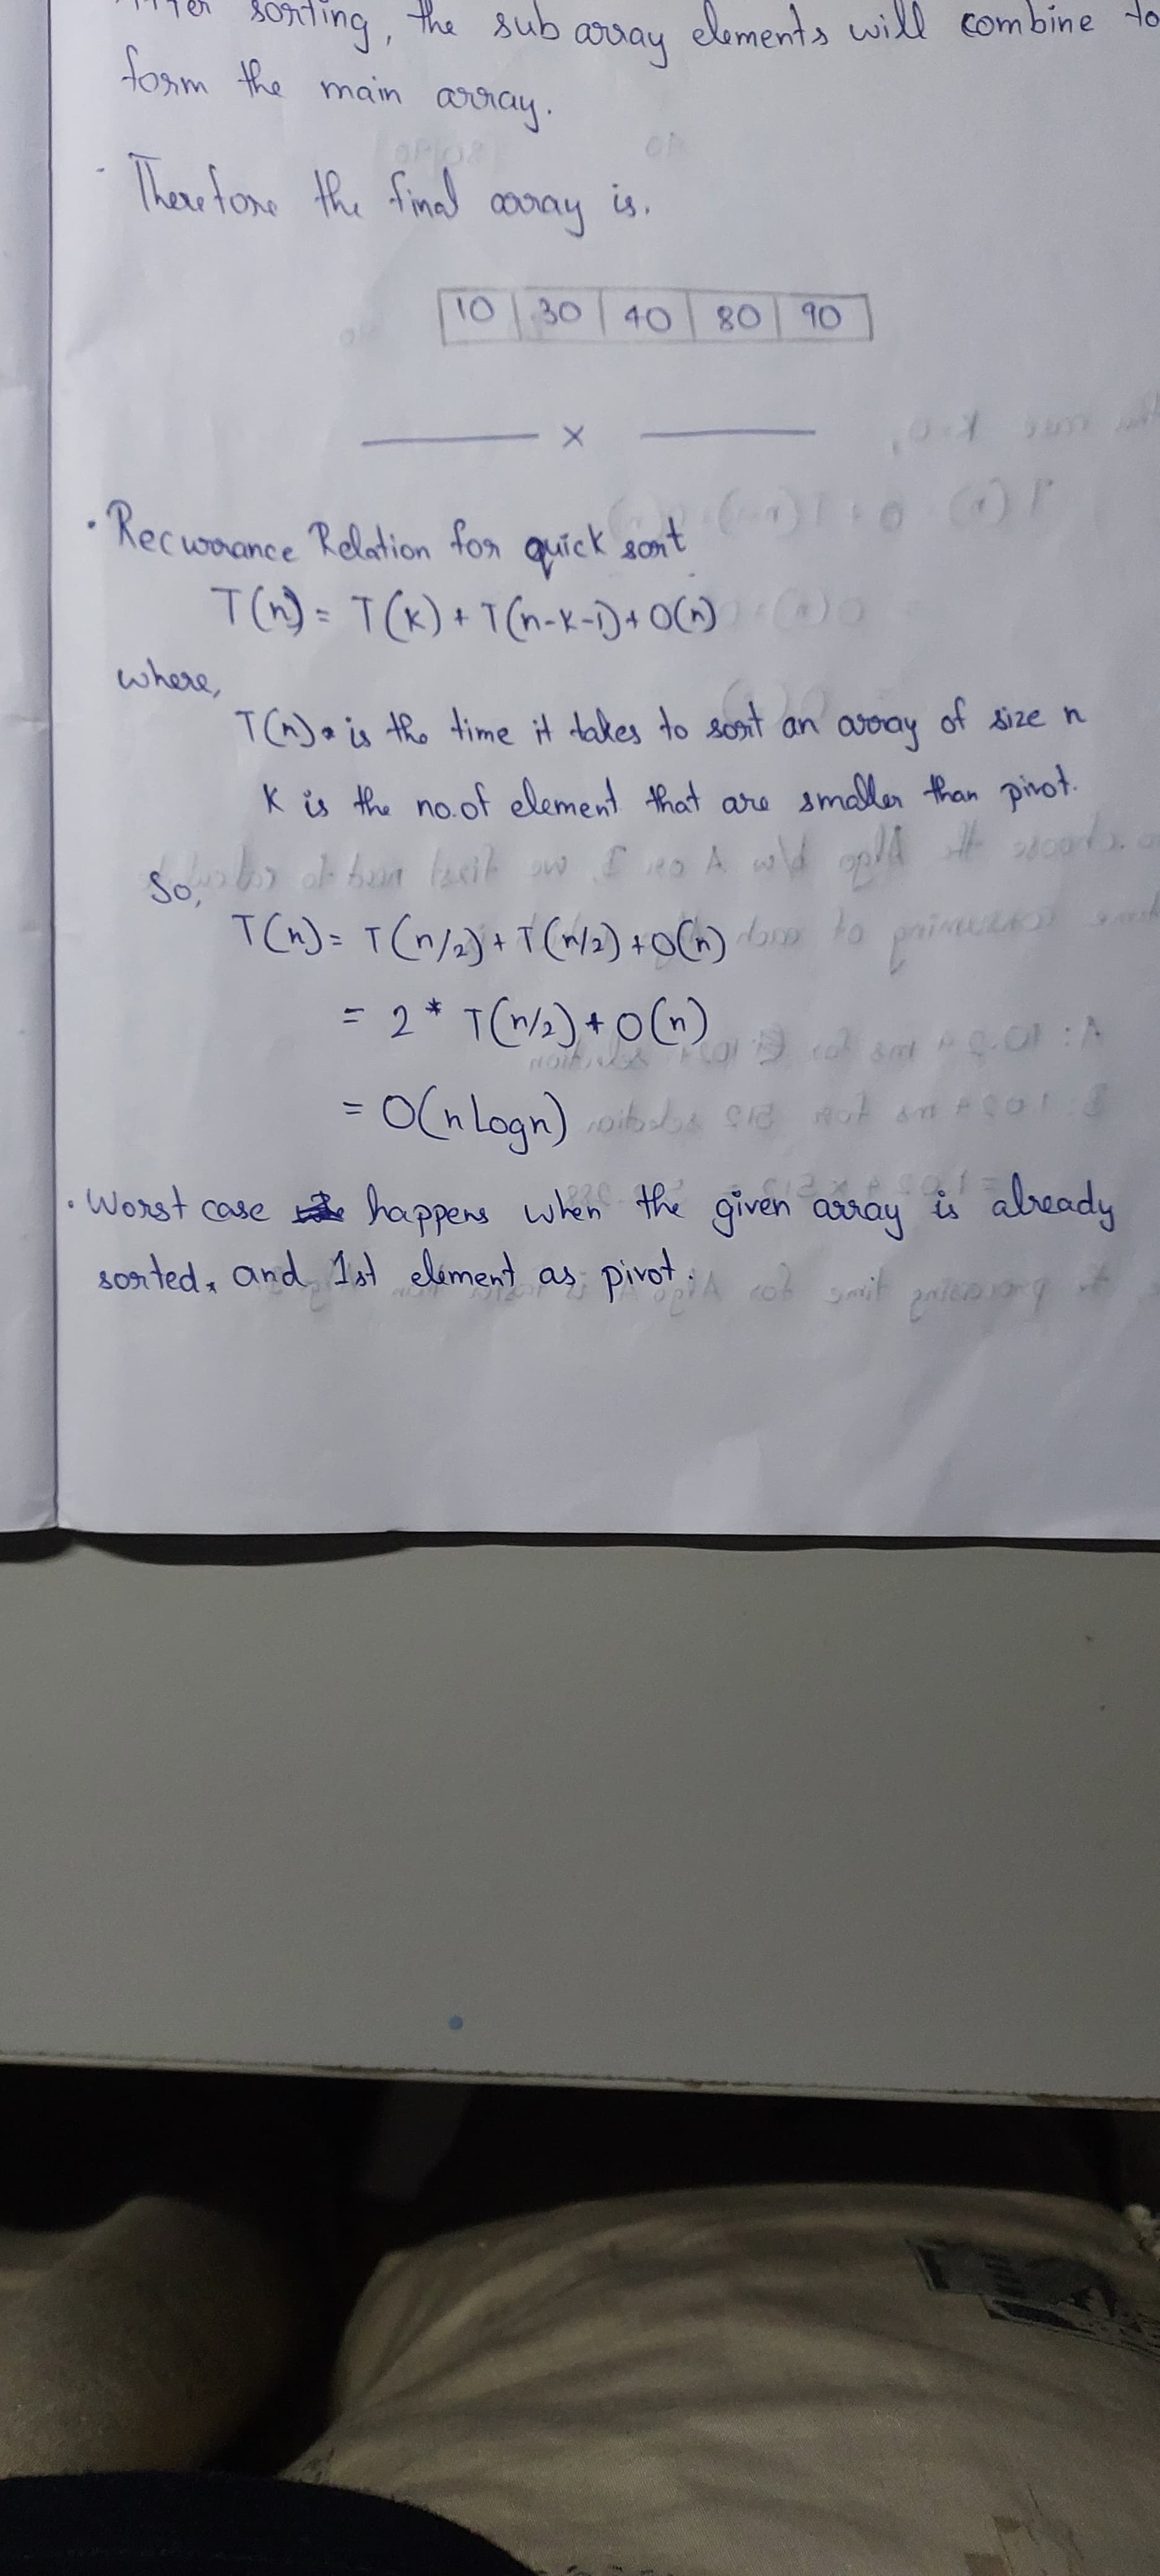 After sorting, the sub array elements will combine to
form the main array.
Therefore the final array is.
10 30 40 80 90
x
• Recurrance Relation for quick sort
T(n) = T(K) + T(n-K-1) + O(n)
where,
T(n) is the time it takes to sort an array of size n
K is the no. of element that are smaller than pivot.
So,
T(n) = T(n/2) + T(n/2) + O(n)
= 2 * T(n/2) + O(n)
= O(n Logn)
• Worst case happens when the given array is already
sorted, and 1st element as pivot.